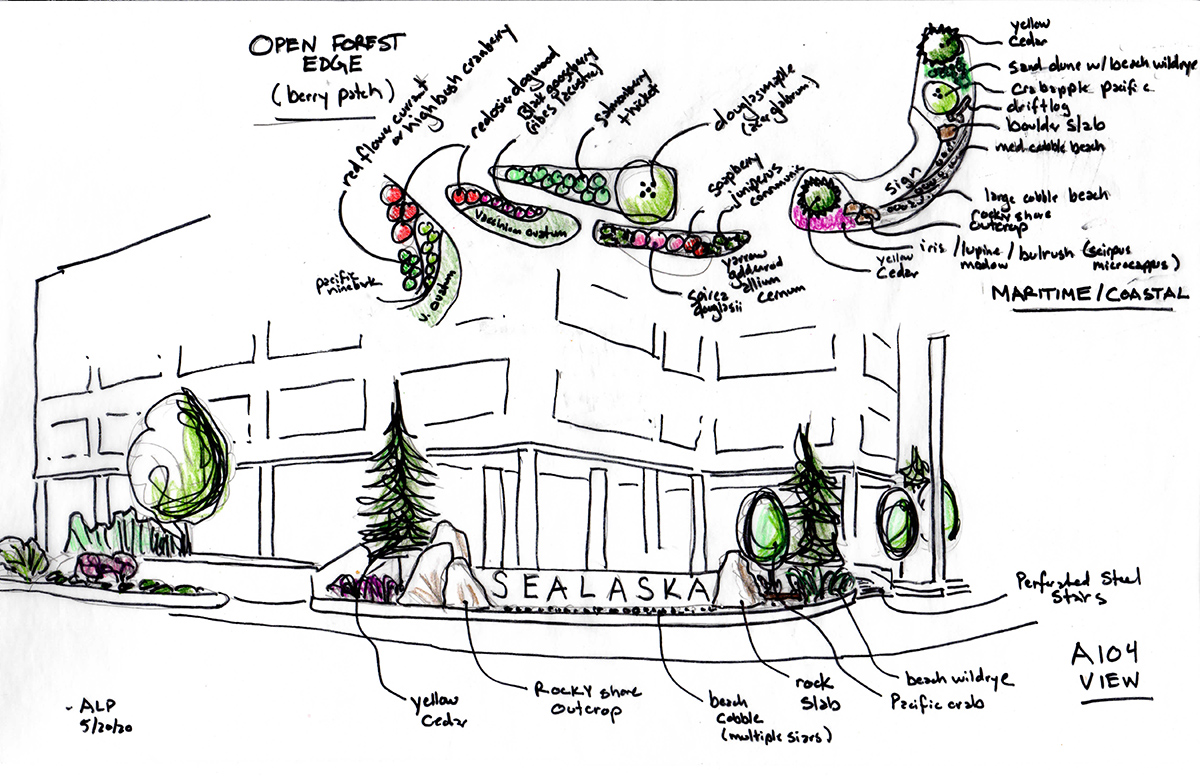 OPEN FOREST
EDGE
(berry patch)
red flower currant
or highbush cranberry
redosier dogwood
Black gooseberry
(ribes lacustra)
salmonberry
thicket
douglasmaple
(acer glabrum)
soapberry
juniperus
communis
Vaccinium ovatum
pacific
ninebark
V. ovatum
spirea
douglasii
yarrow
goldenrod
allium
cernum
yellow
Cedar
sand dune w/ beach wildrye
Crabapple pacific
driftlog
boulder slab
med cobble beach
sign
large cobble beach
rocky shore
outcrop
iris /lupine / bulrush (scirpus
meadow microcarpus)
yellow
Cedar
MARITIME/COASTAL
SEALASKA
Perforated Steel
Stairs
A104
VIEW
beach wildrye
Pacific crab
rock
Slab
beach
Cobble
(multiple sizrs)
Rocky shore
Outcrop
yellow
Cedar
- ALP
5/20/20